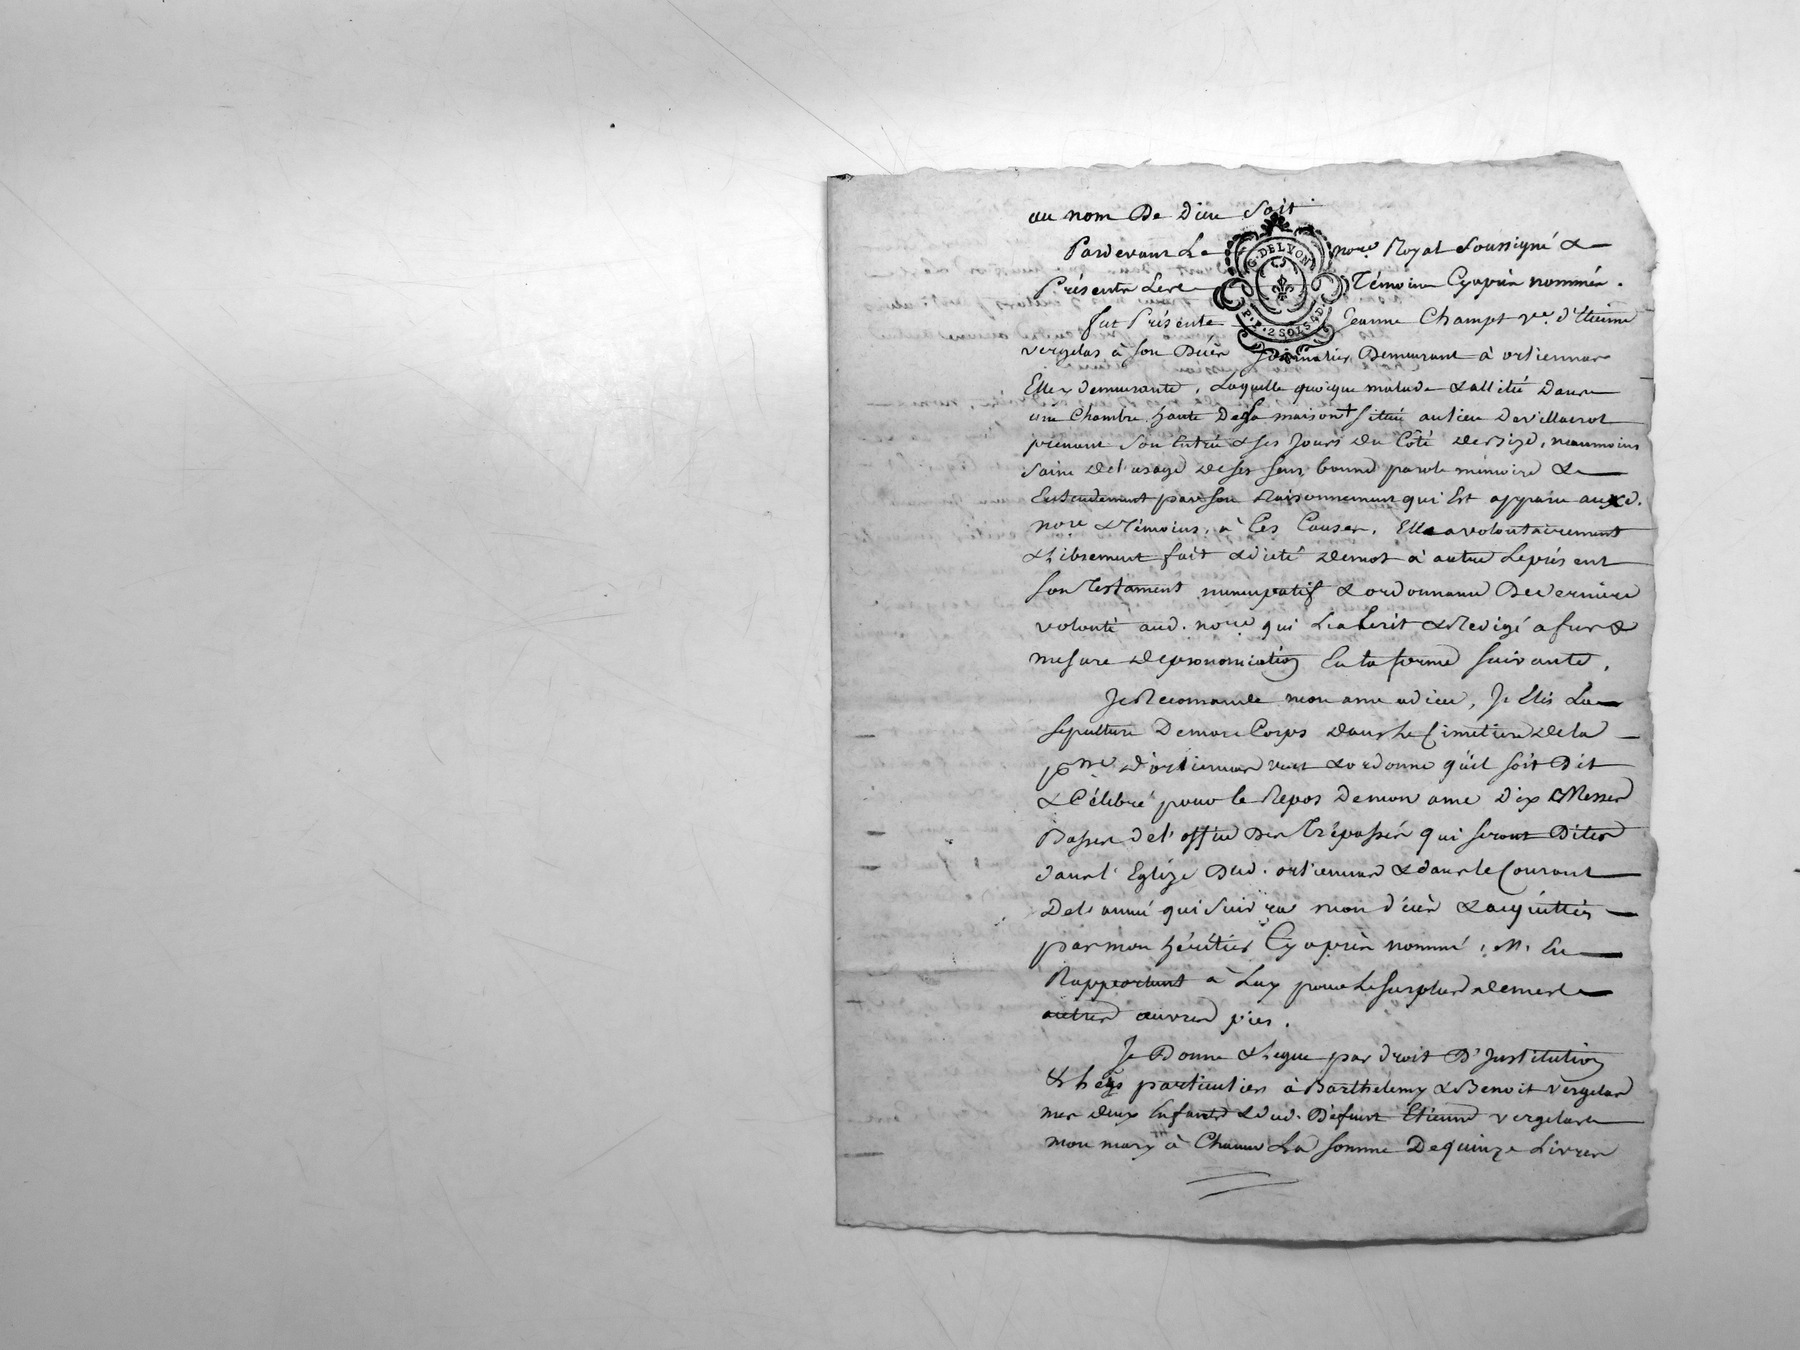 au nom De Dieu Soit
Pardevant Le nore. Royal Soussigné &
Présents Les Témoins Cyaprès nommés.
G. DE LYON
P.P. 2 SOLS 4 D.
fut Présente Jeanne Champt vve. d'Etienne
vergelas à Son Décès Journalier Demeurant à ortiennas
Elle y demeurante, Laquelle quoique malade & allitée Dans
une Chambre haute De Sa maison Situé au lieu De villacrot
prenant Son Entrée & Ses Jours Du Côté De bize, neanmoins
Saine de l'usage de ses Sens bonne parole mémoire &
Entendement par Son Raisonnement qui Est apparu aud.
nore & Témoins, à Ces Causes, Elle a volontairement
& librement fait & dicté de mot à autre Le présent
Son Testament nuncupatif & ordonnance De derniere
volonté aud. nore qui L'a Ecrit & Redigé a fur &
mesure de prononciation En la forme Suivante,
Je Recomande mon ame a dieu, Je Elis La
Sepulture De mon Corps dans le Cimetiere de la
psse d'ortiennas veux & ordonne qu'il Soit Dit
& Célébré pour le Repos De mon ame Dix Messes
Basses de l'office Des Trépassés qui Seront Dites
dans l'Eglize Dud. ortiennas & dans le Courant
De l'année qui Suivra mon décès & acquittés
par mon héritier Cyaprès nommé, M'En
Rapportant à Luy pour Le Surplus de mes
autres œuvres pies.
Je Donne & legue par droit D'Institution
& hegs particuliers à Barthelemy & Benoit vergelas
mes deux Enfants & dud. Defunt Etienne vergelas
mon mary à Chacun La Somme De quinze Livres